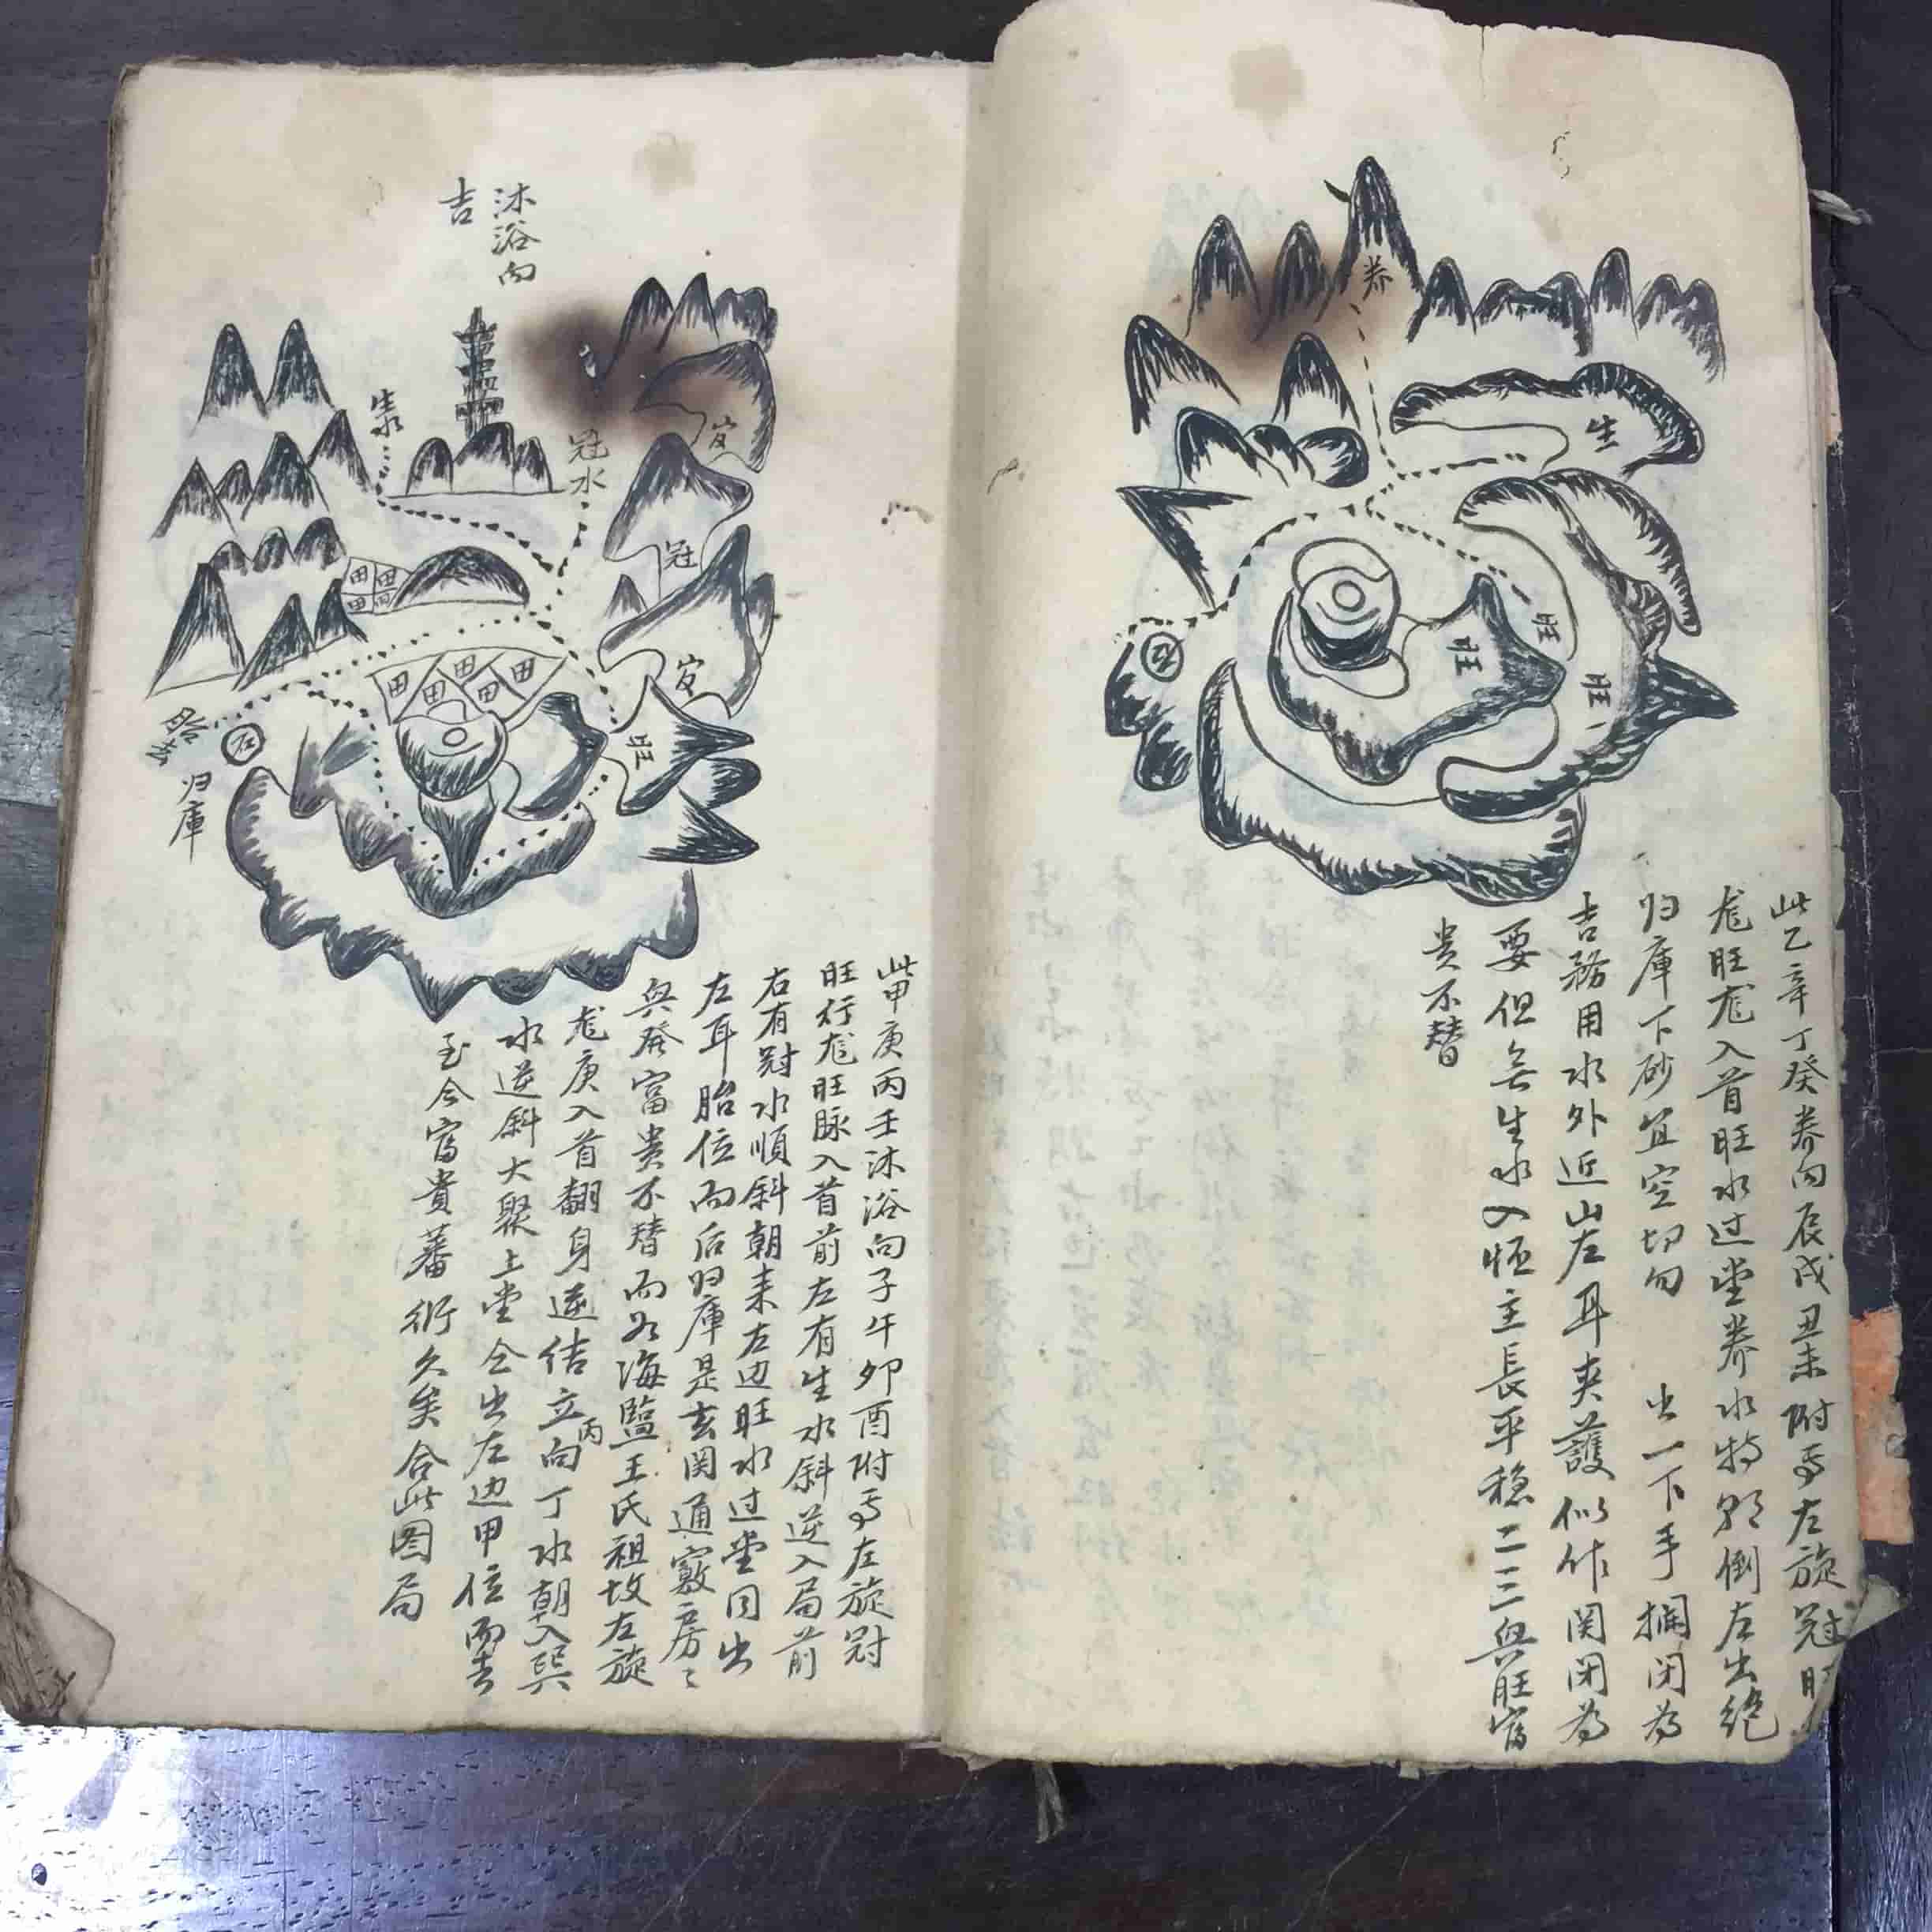 养
生
旺
旺
旺
此乙辛丁癸养向辰戌丑未附焉左旋冠旺
尨旺尨入首旺水过堂养水特朝倒左出绝
归庫下砂宜空切勿 出一下手攔闭为
吉務用水外近山左耳夹護似作関闭为
要但無生水入怔主長平穏二三興旺富
贵不替
沐浴向
吉
生水
冠水
官
冠
官
旺
田田
田田
田田田
田田
胎
归庫
此甲庚丙壬沐浴向子午卯酉附焉左旋冠
旺行尨旺脉入首前左有生水斜逆入局前
右有冠水順斜朝来左边旺水过堂同出
左耳胎位而后归庫是玄関通竅房〻
興發富贵不替而如海監王氏祖坟左旋
尨庚入首翻身逆结立丙向丁水朝入巽
水逆斜大聚上堂仝出左边甲位而去
至今富貴蕃衍久矣合此图局